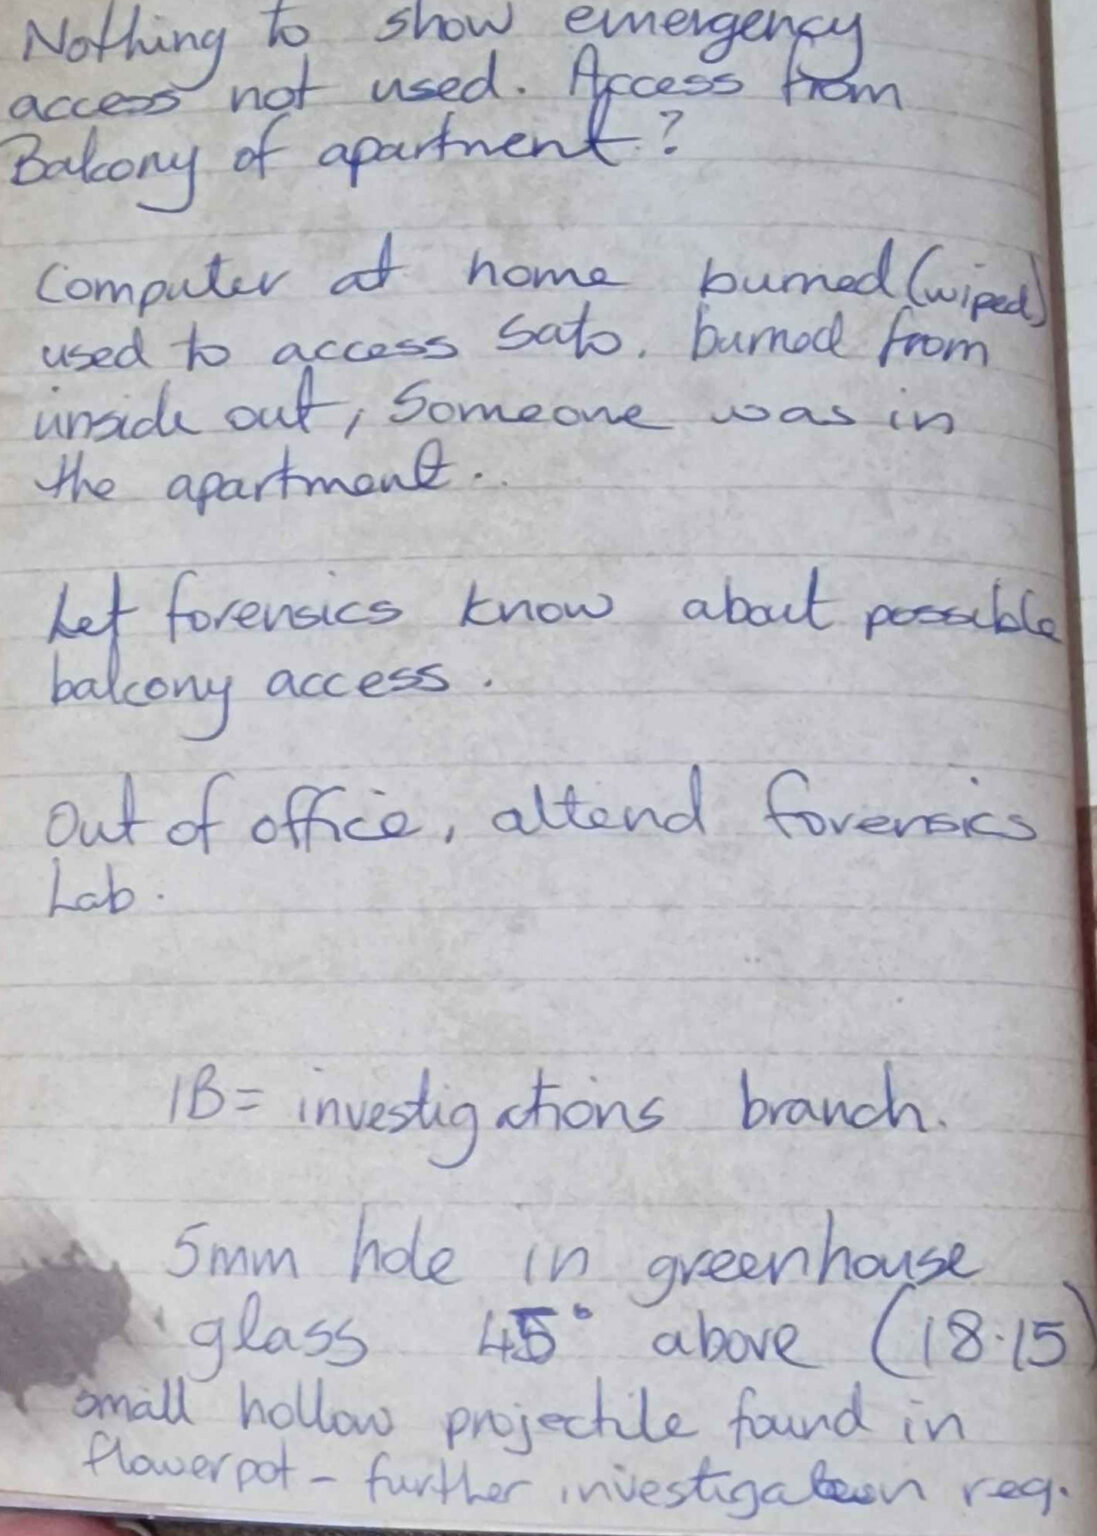 Nothing to show emergency
access not used. Access from
Balcony of apartment?
Computer at home burned (wiped)
used to access Sato. burned from
inside out, Someone was in
the apartment..
Let forensics know about possible
balcony access.
Out of office, attend forensics
Lab.
IB = investigations branch.
5mm hole in greenhouse
glass 45° above (18.15)
small hollow projectile found in
flowerpot - further investigation req.